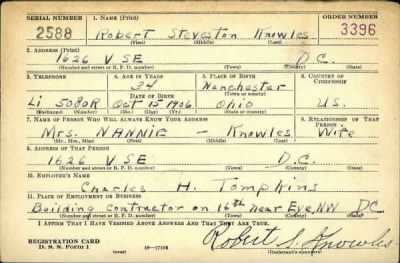 SERIAL NUMBER 1. NAME (Print) ORDER NUMBER
2588 Robert Steveston Knowles 3396
(First) (Middle) (Last)
2. ADDRESS (Print)
1626 V SE D.C.
(Number and street or R. F. D. number) (Town) (County) (State)
3. TELEPHONE 4. AGE IN YEARS 5. PLACE OF BIRTH 6. COUNTRY OF CITIZENSHIP
34 Manchester
DATE OF BIRTH (Town or county)
Li 5080R Oct 15 1906 Ohio U.S.
(Exchange) (Number) (Mo.) (Day) (Yr.) (State or country)
7. NAME OF PERSON WHO WILL ALWAYS KNOW YOUR ADDRESS 8. RELATIONSHIP OF THAT PERSON
Mrs. NANNIE – Knowles Wife
(Mr., Mrs., Miss) (First) (Middle) (Last)
9. ADDRESS OF THAT PERSON
1626 V SE D.C.
(Number and street or R. F. D. number) (Town) (County) (State)
10. EMPLOYER'S NAME
Charles H. Tompkins
11. PLACE OF EMPLOYMENT OR BUSINESS
Building Contractor on 16th Near Eye, NW D.C.
(Number and street or R. F. D. number) (Town) (County) (State)
I AFFIRM THAT I HAVE VERIFIED ABOVE ANSWERS AND THAT THEY ARE TRUE.
REGISTRATION CARD
D. S. S. Form 1 (over) 16—17105 Robert S. Knowles
(Registrant's signature)